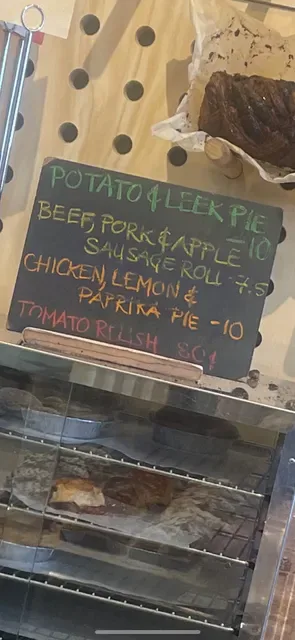 POTATO & LEEK PIE
-10
BEEF, PORK & APPLE
SAUSAGE ROLL -7.5
CHICKEN, LEMON &
PAPRIKA PIE -10
TOMATO RELISH 80¢